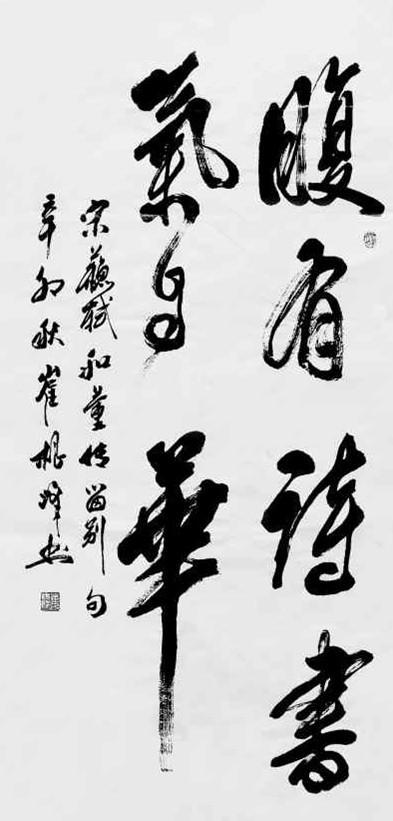 腹有詩書
氣自華
宋蘇軾和董傳留別句
辛卯秋崔根峰書